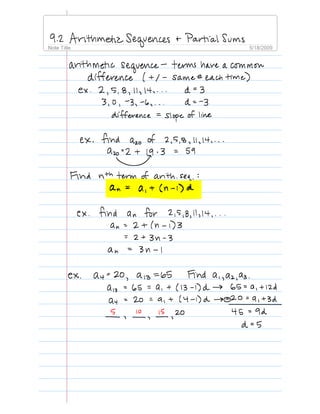 9.2 Arithmetic Sequences + Partial Sums
Note Title 5/18/2009
arithmetic sequence - terms have a common
difference (+/- same # each time)
ex. 2, 5, 8, 11, 14, ... d = 3
3, 0, -3, -6, ... d = -3
difference = slope of line
ex. find a20 of 2, 5, 8, 11, 14, ...
a20 = 2 + 19·3 = 59
Find nth term of arith. seq.:
an = a1 + (n-1)d
ex. find an for 2, 5, 8, 11, 14, ...
an = 2 + (n-1)3
= 2 + 3n - 3
an = 3n - 1
ex. a4 = 20, a13 = 65 Find a1, a2, a3.
a13 = 65 = a1 + (13-1)d → 65 = a1 + 12d
a4 = 20 = a1 + (4-1)d → -20 = a1 + 3d
5, 10, 15, 20 45 = 9d
d = 5